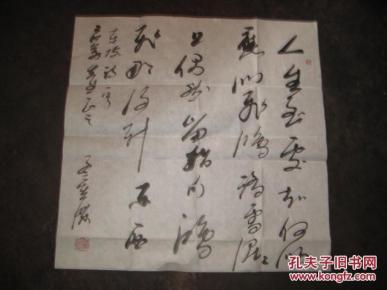 人生到处知何似
應似飛鴻踏雪泥
上偶然留指爪鴻
飛那復計東西
東坡詩句
正之
孔夫子旧书网